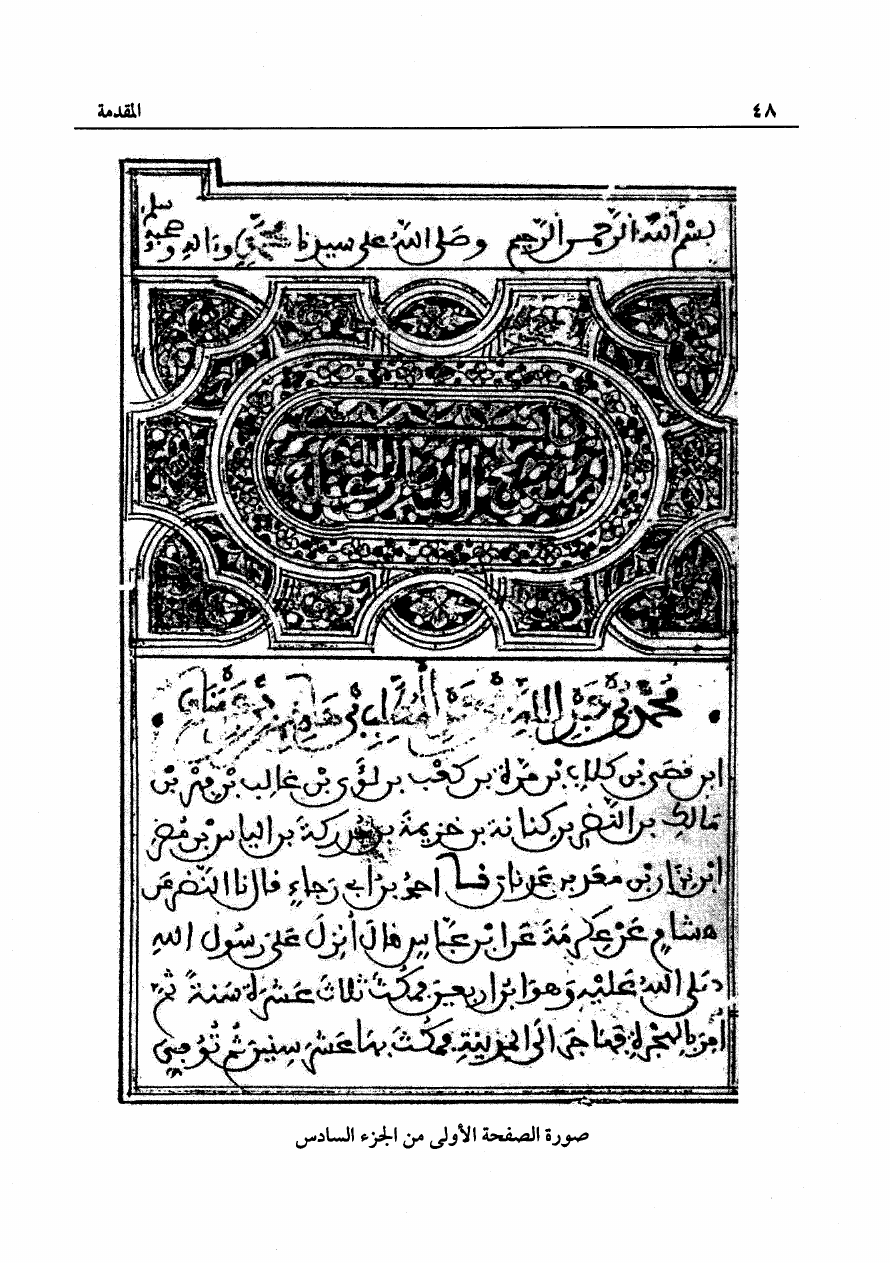 ٤٨ المقدمة
بسم الله الرحمن الرحيم وصلى الله على سيدنا محمد وءاله وصحبه وسلم
باب مبعث النبي صلى الله
محمد بن عبد الله بن عبد المطلب بن هاشم بن عبد مناف
ابن قصي بن كلاب بن مرة بن كعب بن لؤي بن غالب بن فهر بن
مالك بن النضر بن كنانة بن خزيمة بن مدركة بن الياس بن مضر
ابن نزار بن معد بن عدنان نا احمد بن ابي رجاء قال نا النضر عن
هشام عن عكرمة عن ابن عباس قال أنزل على رسول الله
صلى الله عليه وهو ابن اربعين فمكث ثلاث عشرة سنة ثم
أمر بالهجرة فهاجر الى المدينة فمكث بها عشر سنين ثم توفي
صورة الصفحة الأولى من الجزء السادس